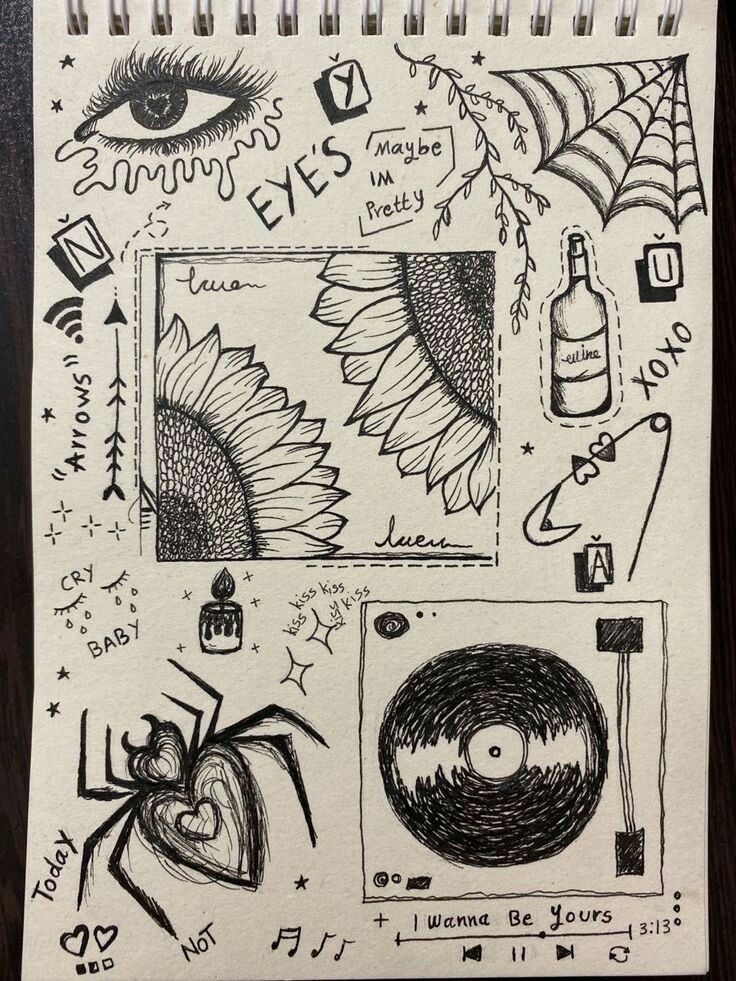 Y
EYE'S
Maybe
IM
Pretty
N
U
wine
XOXO
"Arrows"
A
CRY
BABY
kiss kiss kiss
kiss kiss
Today
NOT
I Wanna Be Yours
3:13